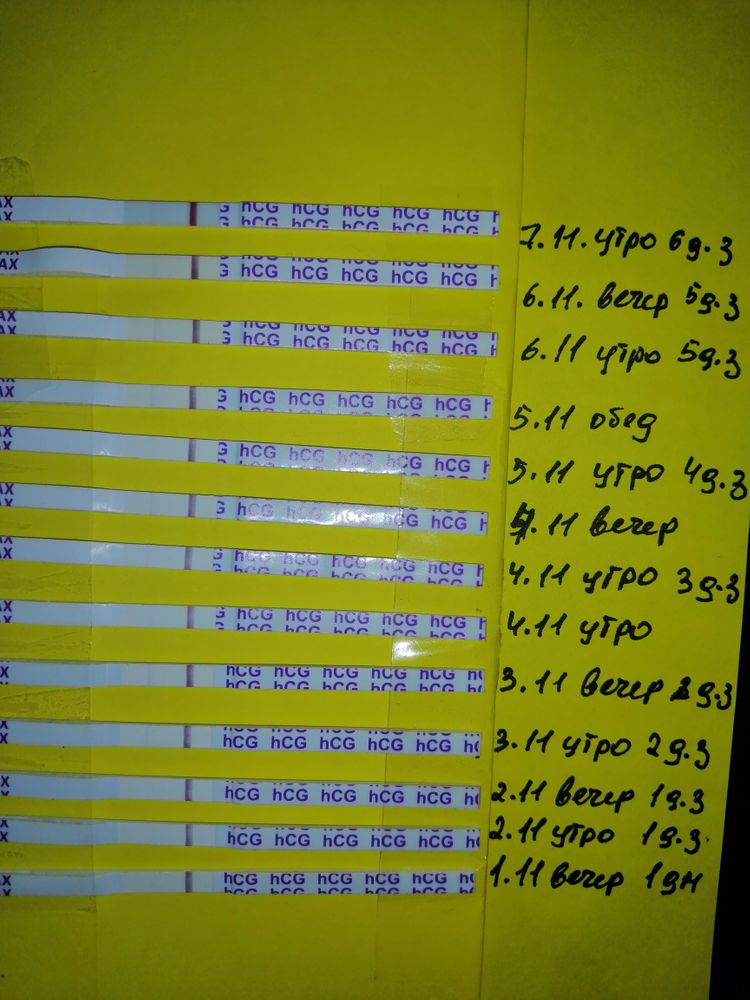 AX hCG hCG hCG hCG hCG
7.11. утро 6д.з
AX hCG hCG hCG hCG hCG
6.11. вечер 5д.з
AX hCG hCG hCG hCG hCG
6.11 утро 5д.з
AX G hCG hCG hCG hCG hCG
5.11 обед
AX G hCG hCG hCG hCG hCG
5.11 утро 4д.з
AX G hCG hCG hCG hCG hCG
4.11 вечер
AX hCG hCG hCG hCG hCG
4.11 утро 3д.з
AX G hCG hCG hCG hCG hCG
4.11 утро
X hCG hCG hCG hCG hCG
3.11 вечер 2д.з
X hCG hCG hCG hCG hCG
3.11 утро 2д.з
X hCG hCG hCG hCG hCG
2.11 вечер 1д.з
X hCG hCG hCG hCG hCG
2.11 утро 1д.з.
X hCG hCG hCG hCG hCG
1.11 вечер 1дн